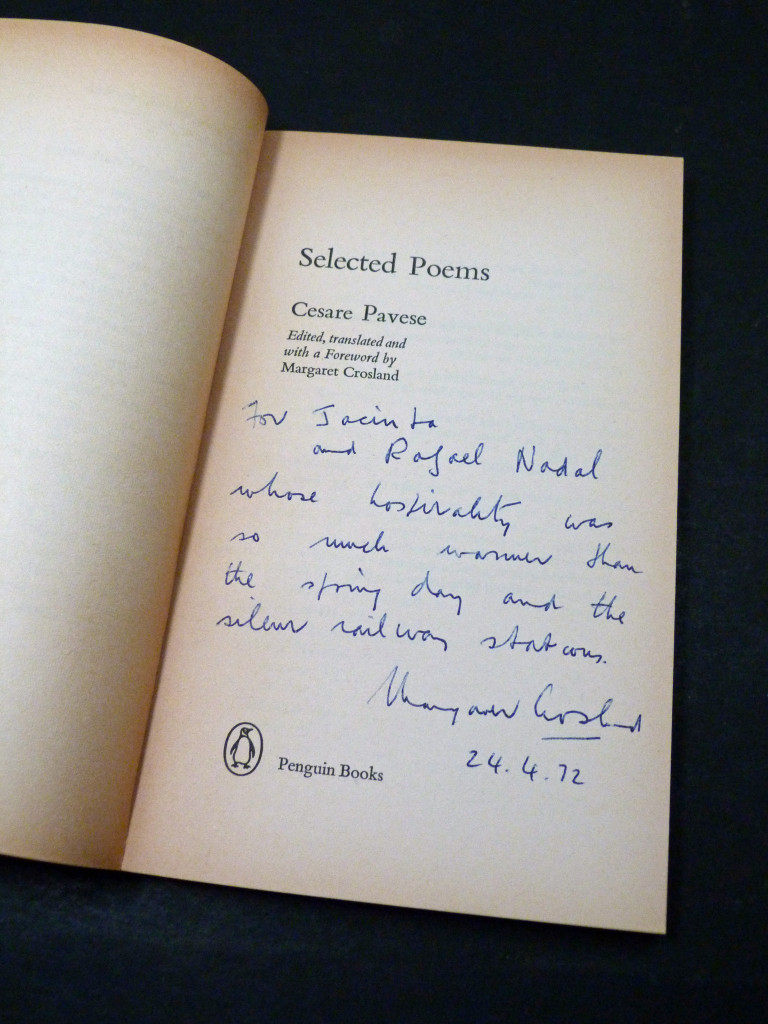 Selected Poems
Cesare Pavese
Edited, translated and
with a Foreword by
Margaret Crosland
For Jacinta
and Rafael Nadal
whose hospitality was
so much warmer than
the spring day and the
silent railway stations.
Margaret Crosland
24.4.72
Penguin Books